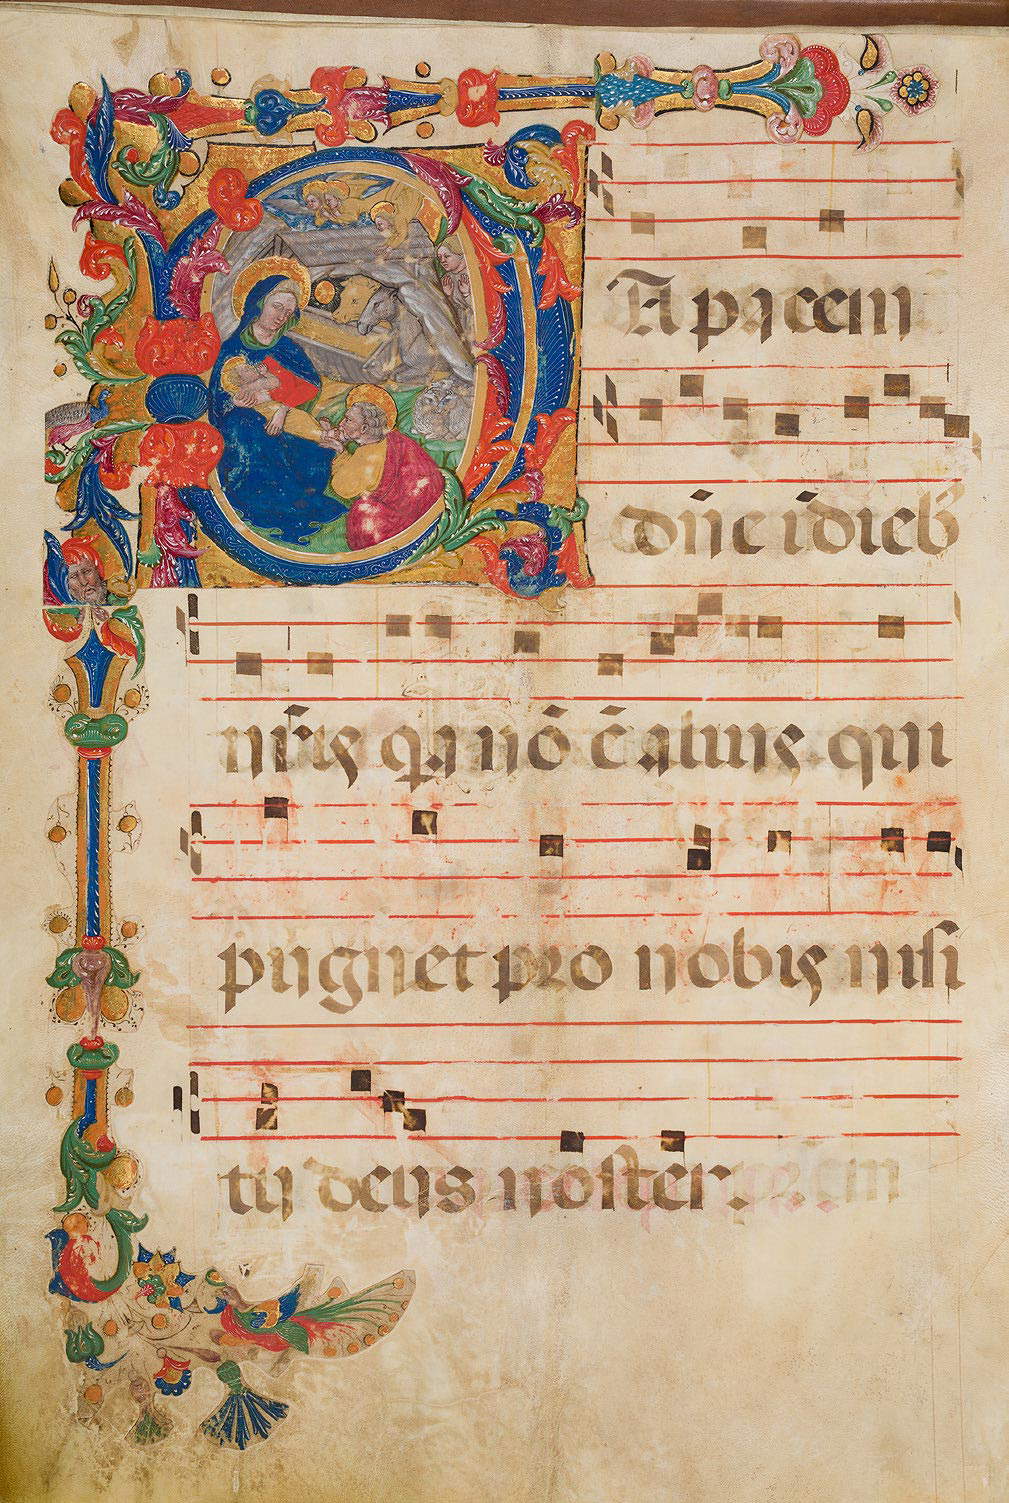 DA pacem
dn̄e ī dieb
nr̄is qa nō ē alius qui
pugnet pro nobis nisi
tu deus noster.